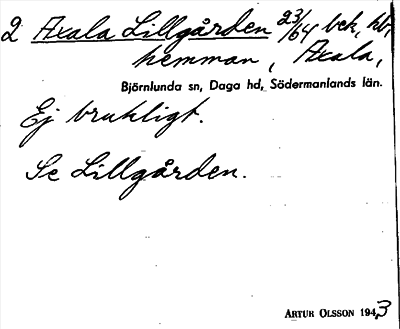 2 Axala Lillgården 23/64 bek, hb,
hemman, Axala,
Björnlunda sn, Daga hd, Södermanlands län.
Ej brukligt.
Se Lillgården.
ARTUR OLSSON 1943